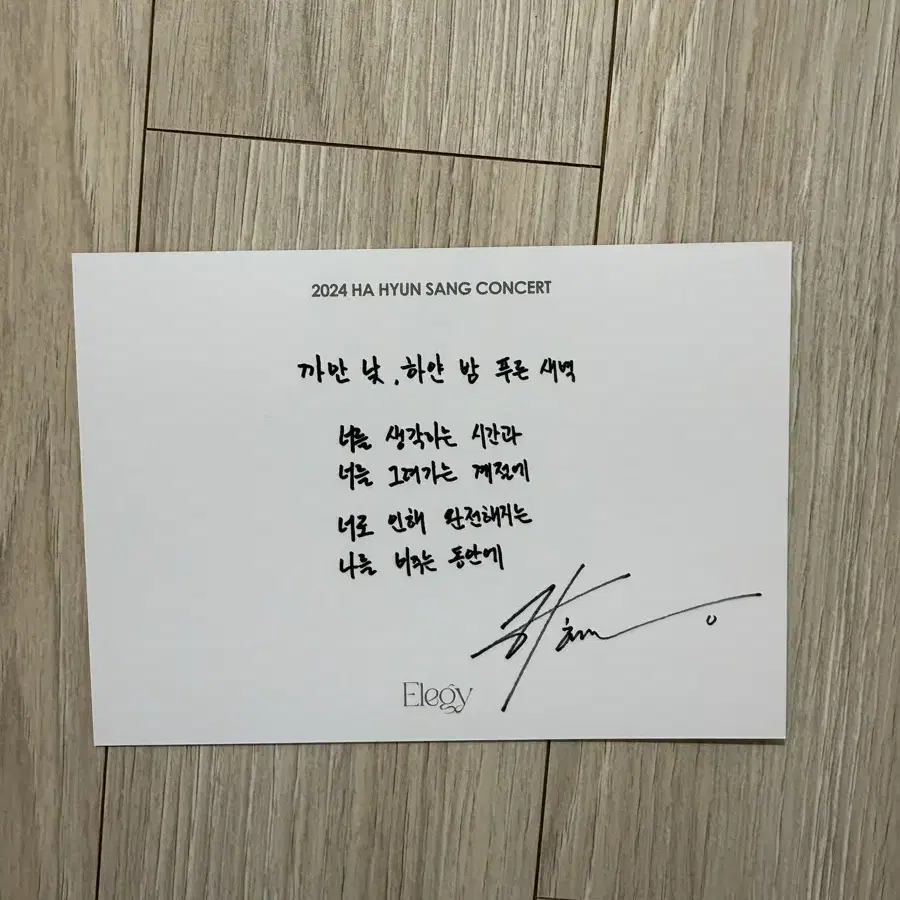 2024 HA HYUN SANG CONCERT
까만 낮, 하얀 밤 푸른 새벽
너를 생각하는 시간과
너를 그려가는 계절에
너로 인해 완전해지는
나를 비추는 동안에
Elegy